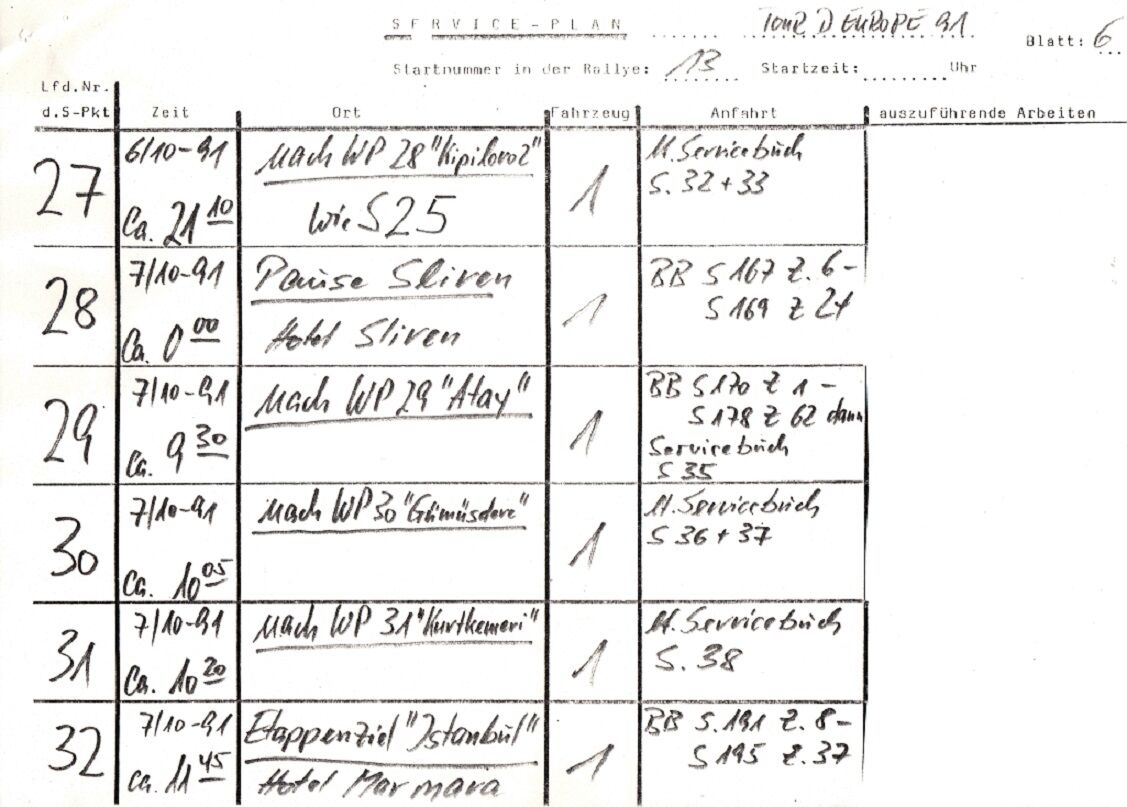 SERVICE-PLAN ...... TOUR D EUROPE 91 Blatt: 6
Startnummer in der Rallye: 13 Startzeit: ........ Uhr
Lfd.Nr.
d.S-Pkt Zeit Ort Fahrzeug Anfahrt auszuführende Arbeiten
27 6/10-91 Nach WP 28 "Kipilovo2" 1 N. Servicebuch
S. 32 + 33
Ca. 21 10 wie S 25
28 7/10-91 Pause Sliven 1 BB S 167 Z. 6 -
S 169 Z 24
Ca. 0 00 Hotel Sliven
29 7/10-91 Nach WP 29 "Atay" 1 BB S 170 Z 1 -
S 178 Z 62 dann
Ca. 9 30 Servicebuch
S 35
30 7/10-91 Nach WP 30 "Gümüsdere" 1 N. Servicebuch
S 36 + 37
Ca. 10 05
31 7/10-91 Nach WP 31 "Kurtkemeri" 1 N. Servicebuch
Ca. 10 20 S. 38
32 7/10-91 Etappenziel "Istanbul" 1 BB S. 191 Z. 8 -
S 195 Z. 37
ca. 11 45 Hotel Marmara